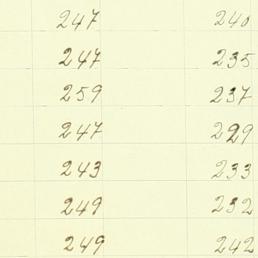 247 240
247 235
259 237
247 229
243 233
249 232
249 242